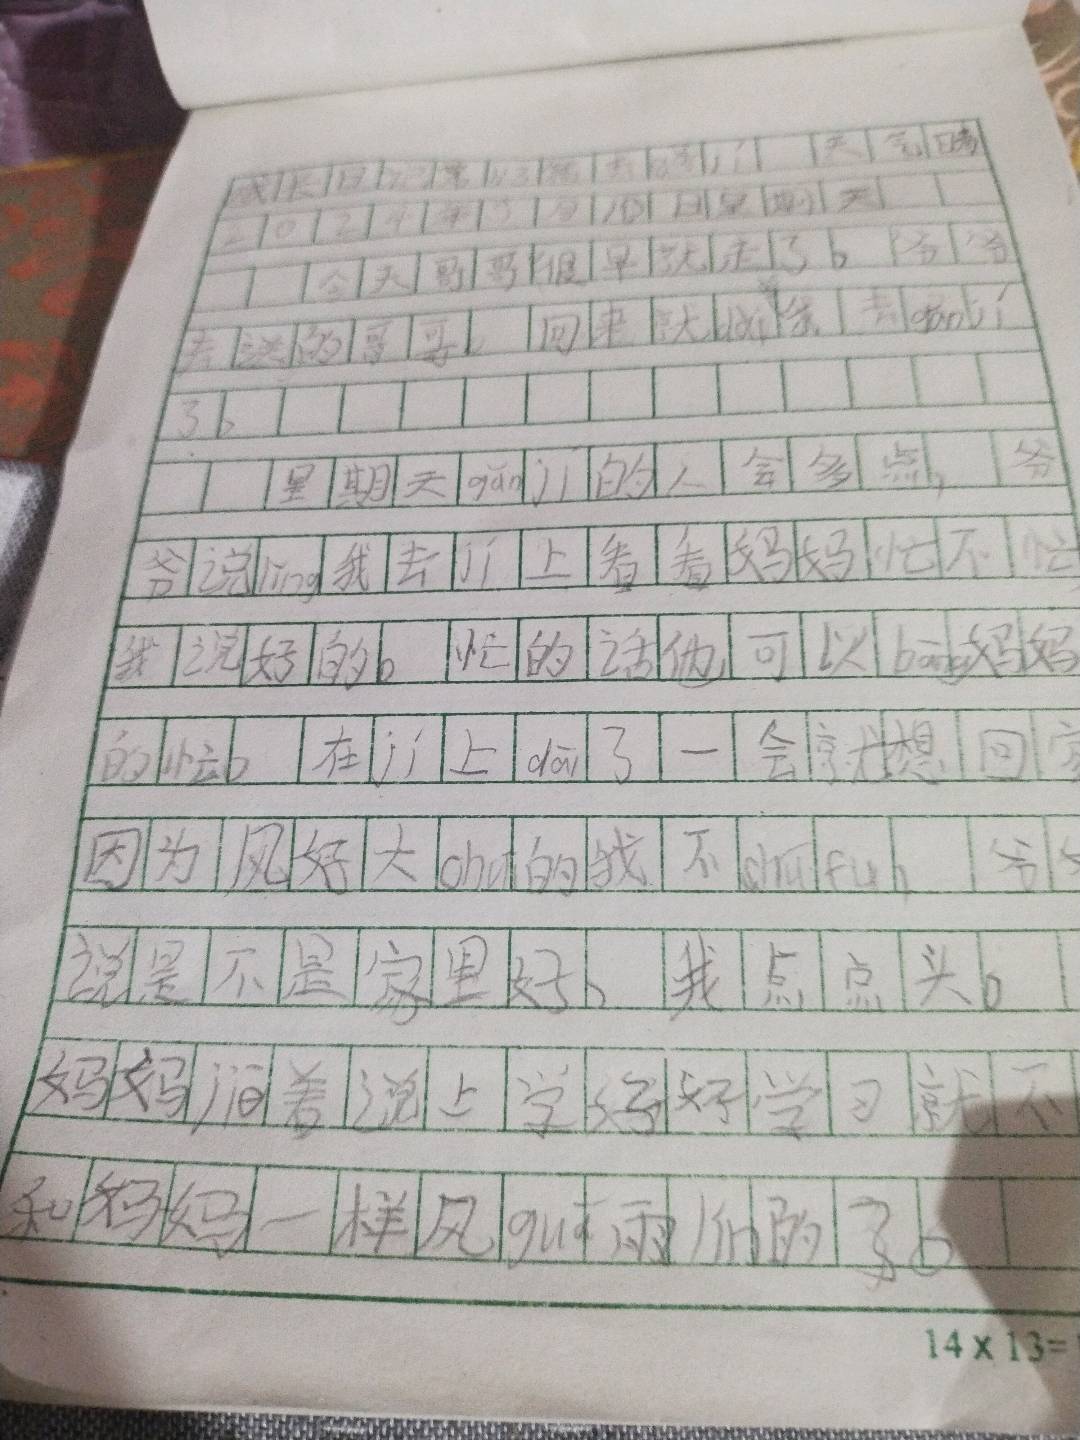 成长日记第43篇去gǎn jí 天气晴
2024年5月19日星期天
今天哥哥很早就走了。爷爷
去送的哥哥。回来就dài我去gǎn jí
了。
星期天gǎn jí的人会多点,爷
爷说lǐng我去jí上看看妈妈忙不忙
我说好的。忙的话他可以bāng妈妈
的忙。在jí上dāi了一会就想回家
因为风好大chuī的我不shū fu,爷爷
说是不是家里好。我点点头。
妈妈jiē着说上学好好学习就不
和妈妈一样风guā雨lín的了。
14 x 13=